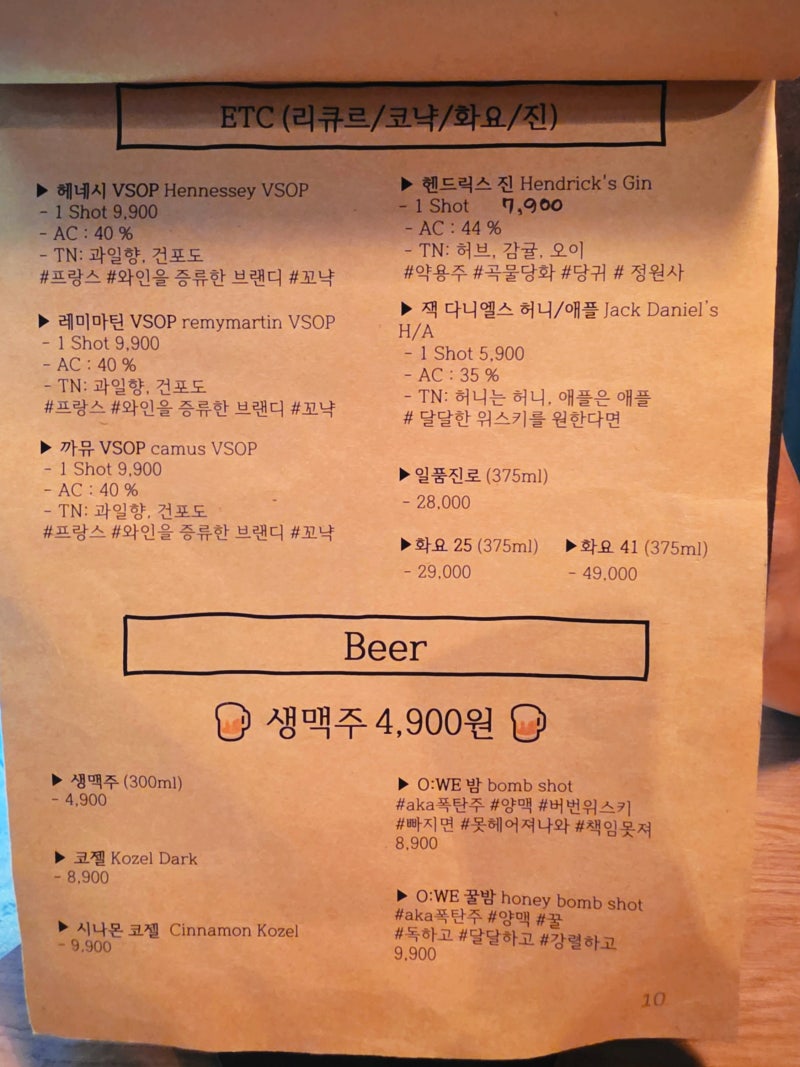 ETC (리큐르/코냑/화요/진)
▶ 헤네시 VSOP Hennessey VSOP
- 1 Shot 9,900
- AC : 40 %
- TN: 과일향, 건포도
#프랑스 #와인을 증류한 브랜디 #꼬냑
▶ 레미마틴 VSOP remymartin VSOP
- 1 Shot 9,900
- AC : 40 %
- TN: 과일향, 건포도
#프랑스 #와인을 증류한 브랜디 #꼬냑
▶ 까뮤 VSOP camus VSOP
- 1 Shot 9,900
- AC : 40 %
- TN: 과일향, 건포도
#프랑스 #와인을 증류한 브랜디 #꼬냑
▶ 헨드릭스 진 Hendrick's Gin
- 1 Shot 7,900
- AC : 44 %
- TN: 허브, 감귤, 오이
#약용주 #곡물당화 #당귀 # 정원사
▶ 잭 다니엘스 허니/애플 Jack Daniel's
H/A
- 1 Shot 5,900
- AC : 35 %
- TN: 허니는 허니, 애플은 애플
# 달달한 위스키를 원한다면
▶일품진로 (375ml)
- 28,000
▶화요 25 (375ml) ▶화요 41 (375ml)
- 29,000 - 49,000
Beer
생맥주 4,900원
▶ 생맥주 (300ml)
- 4,900
▶ 코젤 Kozel Dark
- 8,900
▶ 시나몬 코젤 Cinnamon Kozel
- 9,900
▶ O:WE 밤 bomb shot
#aka폭탄주 #양맥 #버번위스키
#빠지면 #못헤어져나와 #책임못져
8,900
▶ O:WE 꿀밤 honey bomb shot
#aka폭탄주 #양맥 #꿀
#독하고 #달달하고 #강렬하고
9,900
10